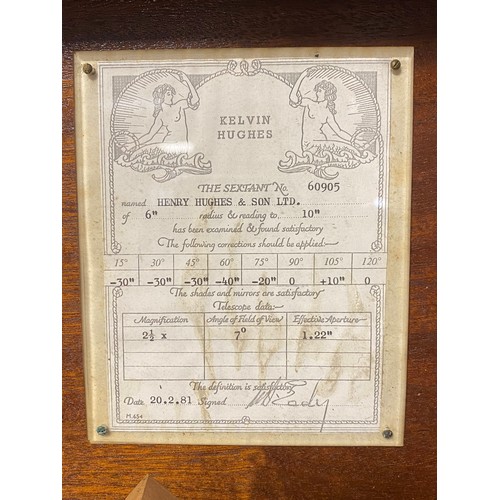 KELVIN
HUGHES
THE SEXTANT No. 60905
named HENRY HUGHES & SON LTD.
of 6" radius & reading to 10"
has been examined & found satisfactory
The following corrections should be applied:-
15° 30° 45° 60° 75° 90° 105° 120°
-30" -30" -30" -40" -20" 0 +10" 0
The shades and mirrors are satisfactory
Telescope data:-
Magnification Angle of Field of View Effective Aperture
2½ x 7° 1.22"
The definition is satisfactory
Date 20.2.81 Signed
M.654